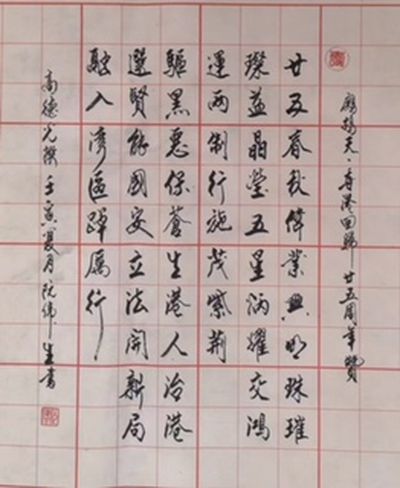 鷓鴣天·香港回歸廿五周年贊
廿五春秋偉業興明珠璀
璨益晶瑩五星炳耀交鴻
運兩制行施茂紫荊
驅黑惡保蒼生港人治港
選賢能國安立法開新局
融入灣區踔厲行
高德光撰壬寅夏月阮偉生書